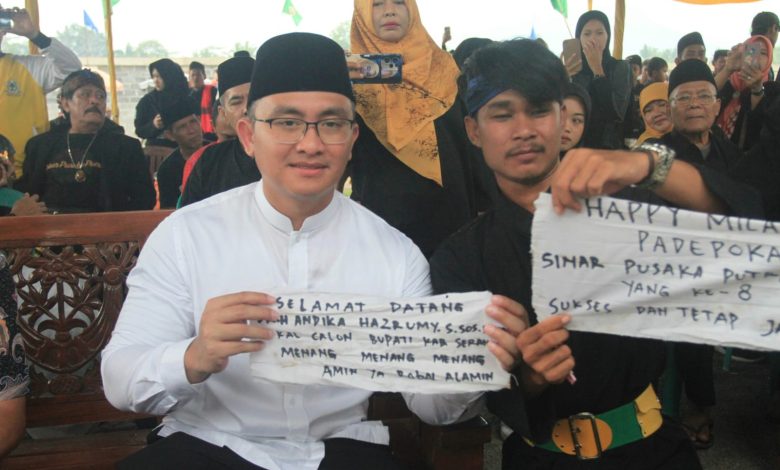 SELAMAT DATANG
H ANDIKA HAZRUMY. S.SOS.
CALON BUPATI KAB SERAN
MENANG MENANG MENANG
AMIN YA Robal ALAMIN
HAPPY MILA
PADEPOKA
SINAR PUSAKA PUTR
YANG KE-8
SUKSES DAN TETAP JA